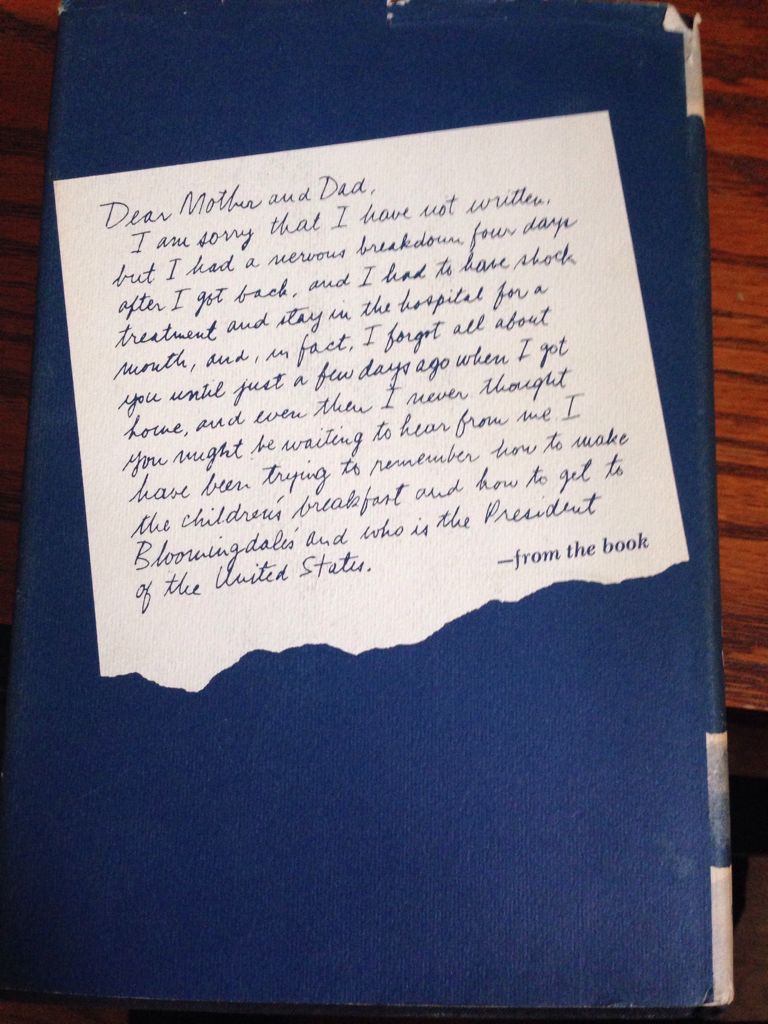 Dear Mother and Dad,
I am sorry that I have not written,
but I had a nervous breakdown four days
after I got back, and I had to have shock
treatment and stay in the hospital for a
month, and, in fact, I forgot all about
you until just a few days ago when I got
home, and even then I never thought
you might be waiting to hear from me I
have been trying to remember how to make
the children's breakfast and how to get to
Bloomingdale's and who is the President
of the United States.
—from the book